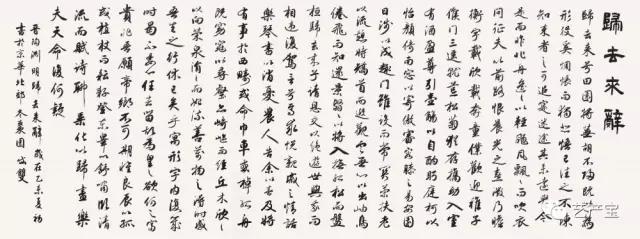 歸去來辭
歸去來兮田園將蕪胡不歸既自以心為
形役奚惆悵而獨悲悟已往之不諫
知來者之可追寔迷途其未遠覺今
是而昨非舟遙遙以輕颺風飄飄而吹衣
問征夫以前路恨晨光之熹微乃瞻
衡宇載欣載奔僮僕歡迎稚子
候門三逕就荒松菊猶存攜幼入室
有酒盈尊引壺觴以自酌眄庭柯以
怡顏倚南窗以寄傲審容膝之易安園
日涉以成趣門雖設而常關策扶老
以流憩時矯首而遐觀雲無心以出岫鳥
倦飛而知還景翳翳以將入撫孤松而盤
桓歸去來兮請息交以絕遊世與我而
相違復駕言兮焉求悅親戚之情話
樂琴書以消憂農人告余以春及將
有事於西疇或命巾車或棹孤舟
既窈窕以尋壑亦崎嶇而經丘木欣欣
以向榮泉涓涓而始流善萬物之得時感
吾生之行休已矣乎寓形宇內復幾
時曷不委心任去留胡為乎遑遑欲何之富
貴非吾願帝鄉不可期懷良辰以孤往
或植杖而耘耔登東皋以舒嘯臨清
流而賦詩聊乘化以歸盡樂
夫天命復何疑
晉陶淵明歸去來辭歲在乙未夏初
書於京華北郊冬棗園 成雙
艺产宝